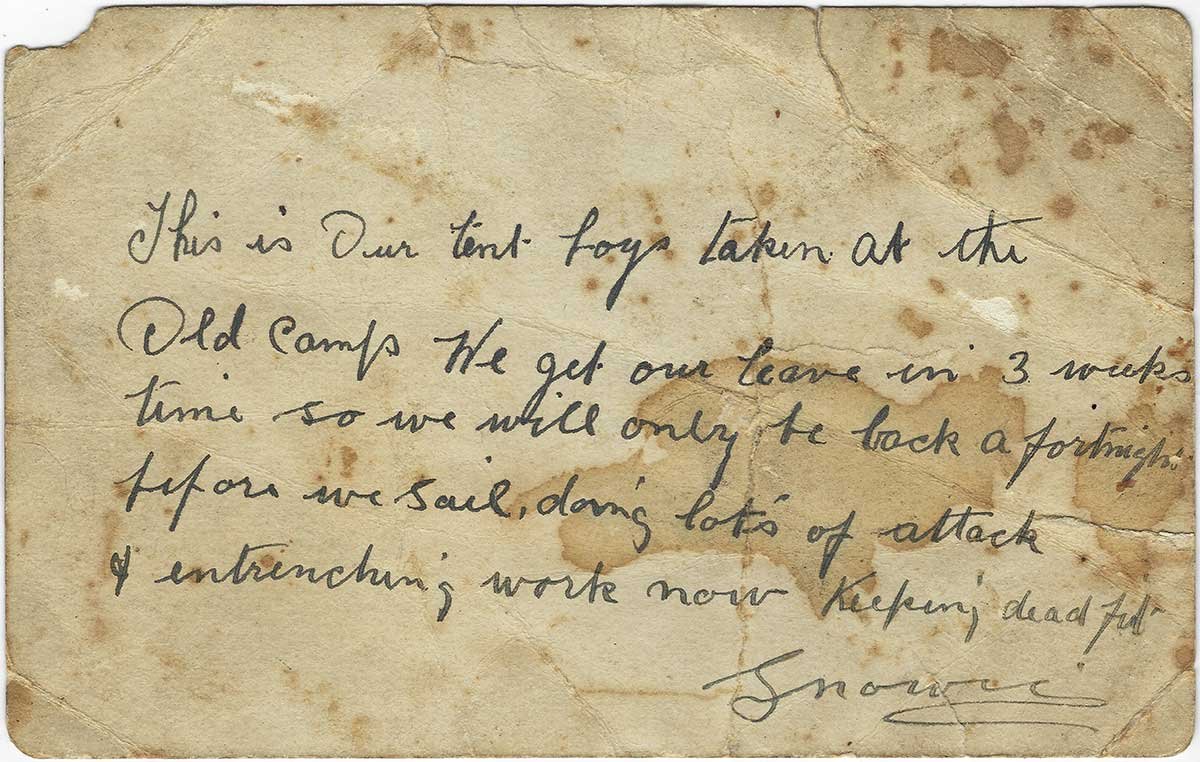 This is Our tent boys taken at the
Old Camp We get our leave in 3 weeks
time so we will only be back a fortnight
before we sail, doing lots of attack
& entrenching work now Keeping dead fit
Snowie